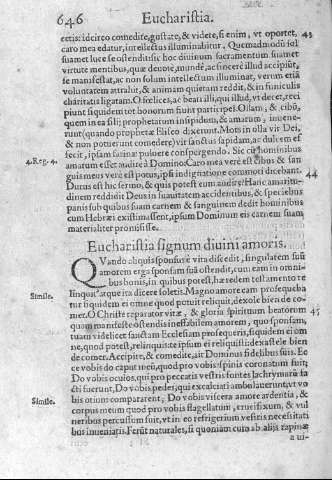 646 Eucharistia.
cetis: idcirco comedite, gustate, & videte, si enim, vt oportet, 43
caro mea edatur, intellectus illuminabitur. Quemadmodũ sol
suamet luce se ostendit: sic hoc diuinum sacramentum suamet
virtute mentibus, quæ deuote, mundè, ac sincerè illud accipiũt,
se manifestat, ac non solum intellectum illuminat, verum etiã
voluntatem attrahit, & animam quietam reddit, & in funiculis
charitatis ligatam. O felices, ac beati illi, qui illud, vt decet, reci
piunt siquidem tot bonorum fiunt participes. Oilam, & cibũ,
quem in ea filij prophetarum insipidum, & amarum, inuene-
runt (quando prophetæ Eliseo dixerunt. Mors in olla vir Dei,
& non potuerunt comedere) vir sanctus sapidam, ac dulcem ef
4. Reg. 4. fecit, ipsam farinæ puluere conspergendo. Sic cũ hominibus
amarum esset audire à Domino. Caro mea verè est cibus & san
guis meus verè est potus, ipsi indignatione commoti dicebant. 44
Durus est hic sermo, & quis potest eum audire? Hanc amaritu-
dinem reddidit Deus in suauitatem accidentibus, & speciebus
panis sub quibus suam carnem & sanguinem dedit hominibus
cum Hebræi existimassent, ipsum Dominum eis carnem suam
materialiter promisisse.
Eucharistia signum diuini amoris.
QVando abijt sponsus è vita discedit, singularem suũ
amorem erga sponsam suã ostendit, cum eam in omni-
bus bonis, in quibus potest, hæredem testamento re
Simile. linquit atque ita dicere soletis. Magno amore eam prosequeba
tur siquidem ei omne quod potuit reliquit, dexole bien de co-
mer. O Christe reparator vitæ, & gloria spirituum beatorum 45
quam manifeste ostendis ineffabilem amorem, quo sponsam,
tuam videlicet sanctam Ecclesiam prosequeris, siquidem ei om
ne, quod potest, relinquis: te ipsum ei reliquisti: dexastele bien
de comer. Accipite, & comedite, ait Dominus fidelibus suis. Ec
ce vobis do caput meũ, quod pro vobis spinis coronatum fuit;
Do vobis oculos, qui pro peccatis vestris fontes lachrymarũ fa
cti fuerunt, Do vobis pedes, qui excalciati ambulauerunt, vt vo
Simile. bis otium compararent; Do vobis viscera amore ardentia, &
corpus meum quod pro vobis flagellatum, crucifixum, & vul
neribus percussum fuit, vt in eo refrigerium vestris necessitati
bus inueniatis. Ferũt naturales, si quoniam cum ab alijs rapinæ
a ui-